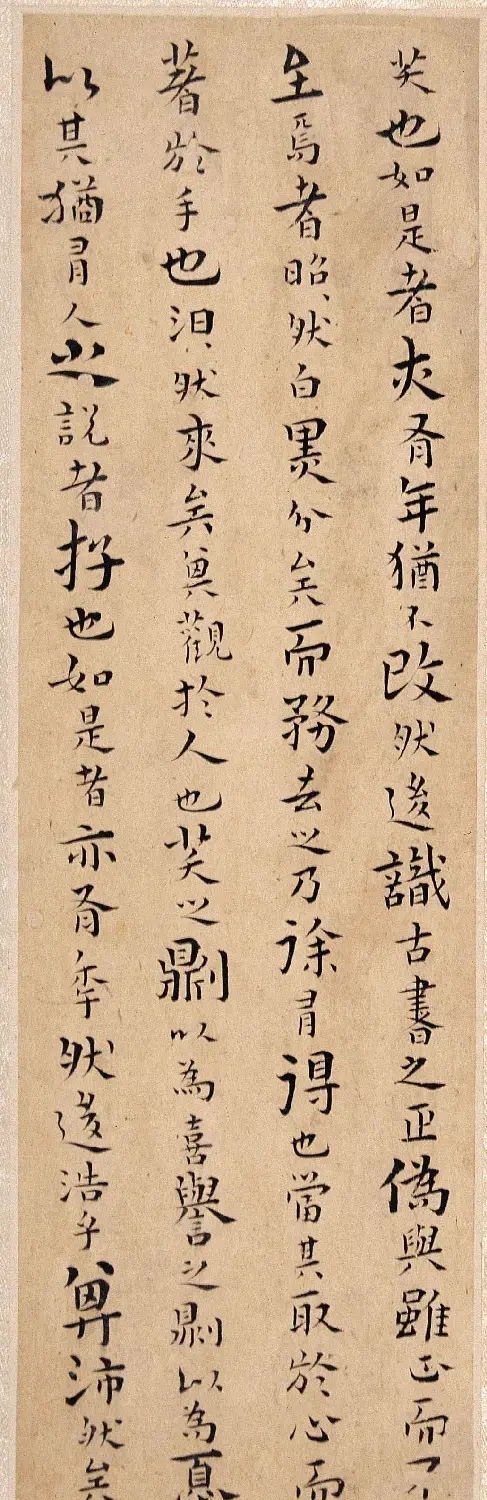 笑也如是者亦有年猶不改然後識古書之正偽與雖正而
至焉者昭〻然白黑分矣而務去之乃徐有得也當其取於心而
著於手也汩〻然來矣其觀於人也笑之則以為喜譽之則以為
以其猶有人之說者存也如是者亦有年然後浩乎其沛然矣